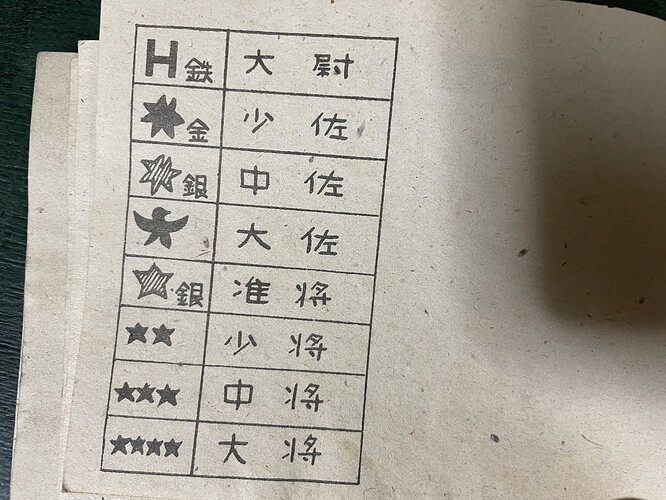 H鉄 大尉
金 少佐
銀 中佐
大佐
銀 准将
少将
中将
大将